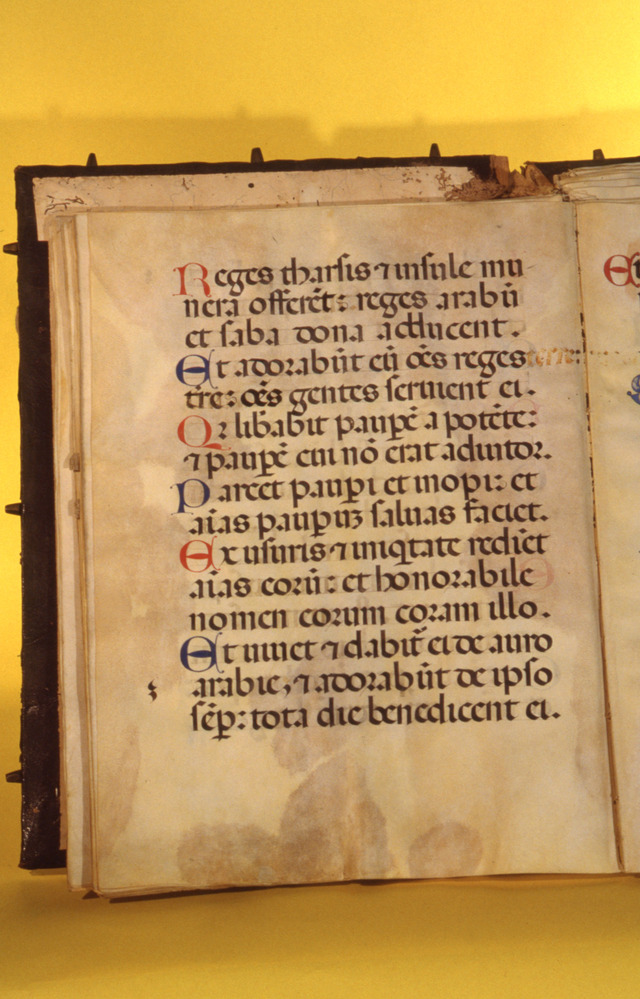 Reges tharsis ⁊ insule mu
nera offerēt: reges arabū
et saba dona adducent.
Et adorabūt eū oēs reges terre:
tr̄e: oēs gentes seruient ei.
Qr libabit paupē a potēte:
⁊ paupē cui nō erat adiutor.
Parcet pauꝑi et inopi: et
aīas pauꝑuꝫ saluas faciet.
Ex usuris ⁊ iniqtate rediēt
aīas eorū: et honorabile
nomen eorum coram illo.
Et uiuet ⁊ dabit̄ ei de auro
arabie, ⁊ adorabūt de ipso
sēꝑ: tota die benedicent ei.